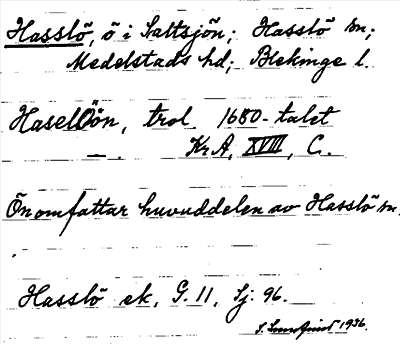 Hasslö, ö i Saltsjön; Hasslö sn;
Medelstads hd; Blekinge l.
Hasellöön, trol. 1680-talet
— . Kr.A, XVIII, C.
Ön omfattar huvuddelen av Hasslö sn.
Hasslö ek, G. 11, Sj. 96.
S. Lundquist 1936.